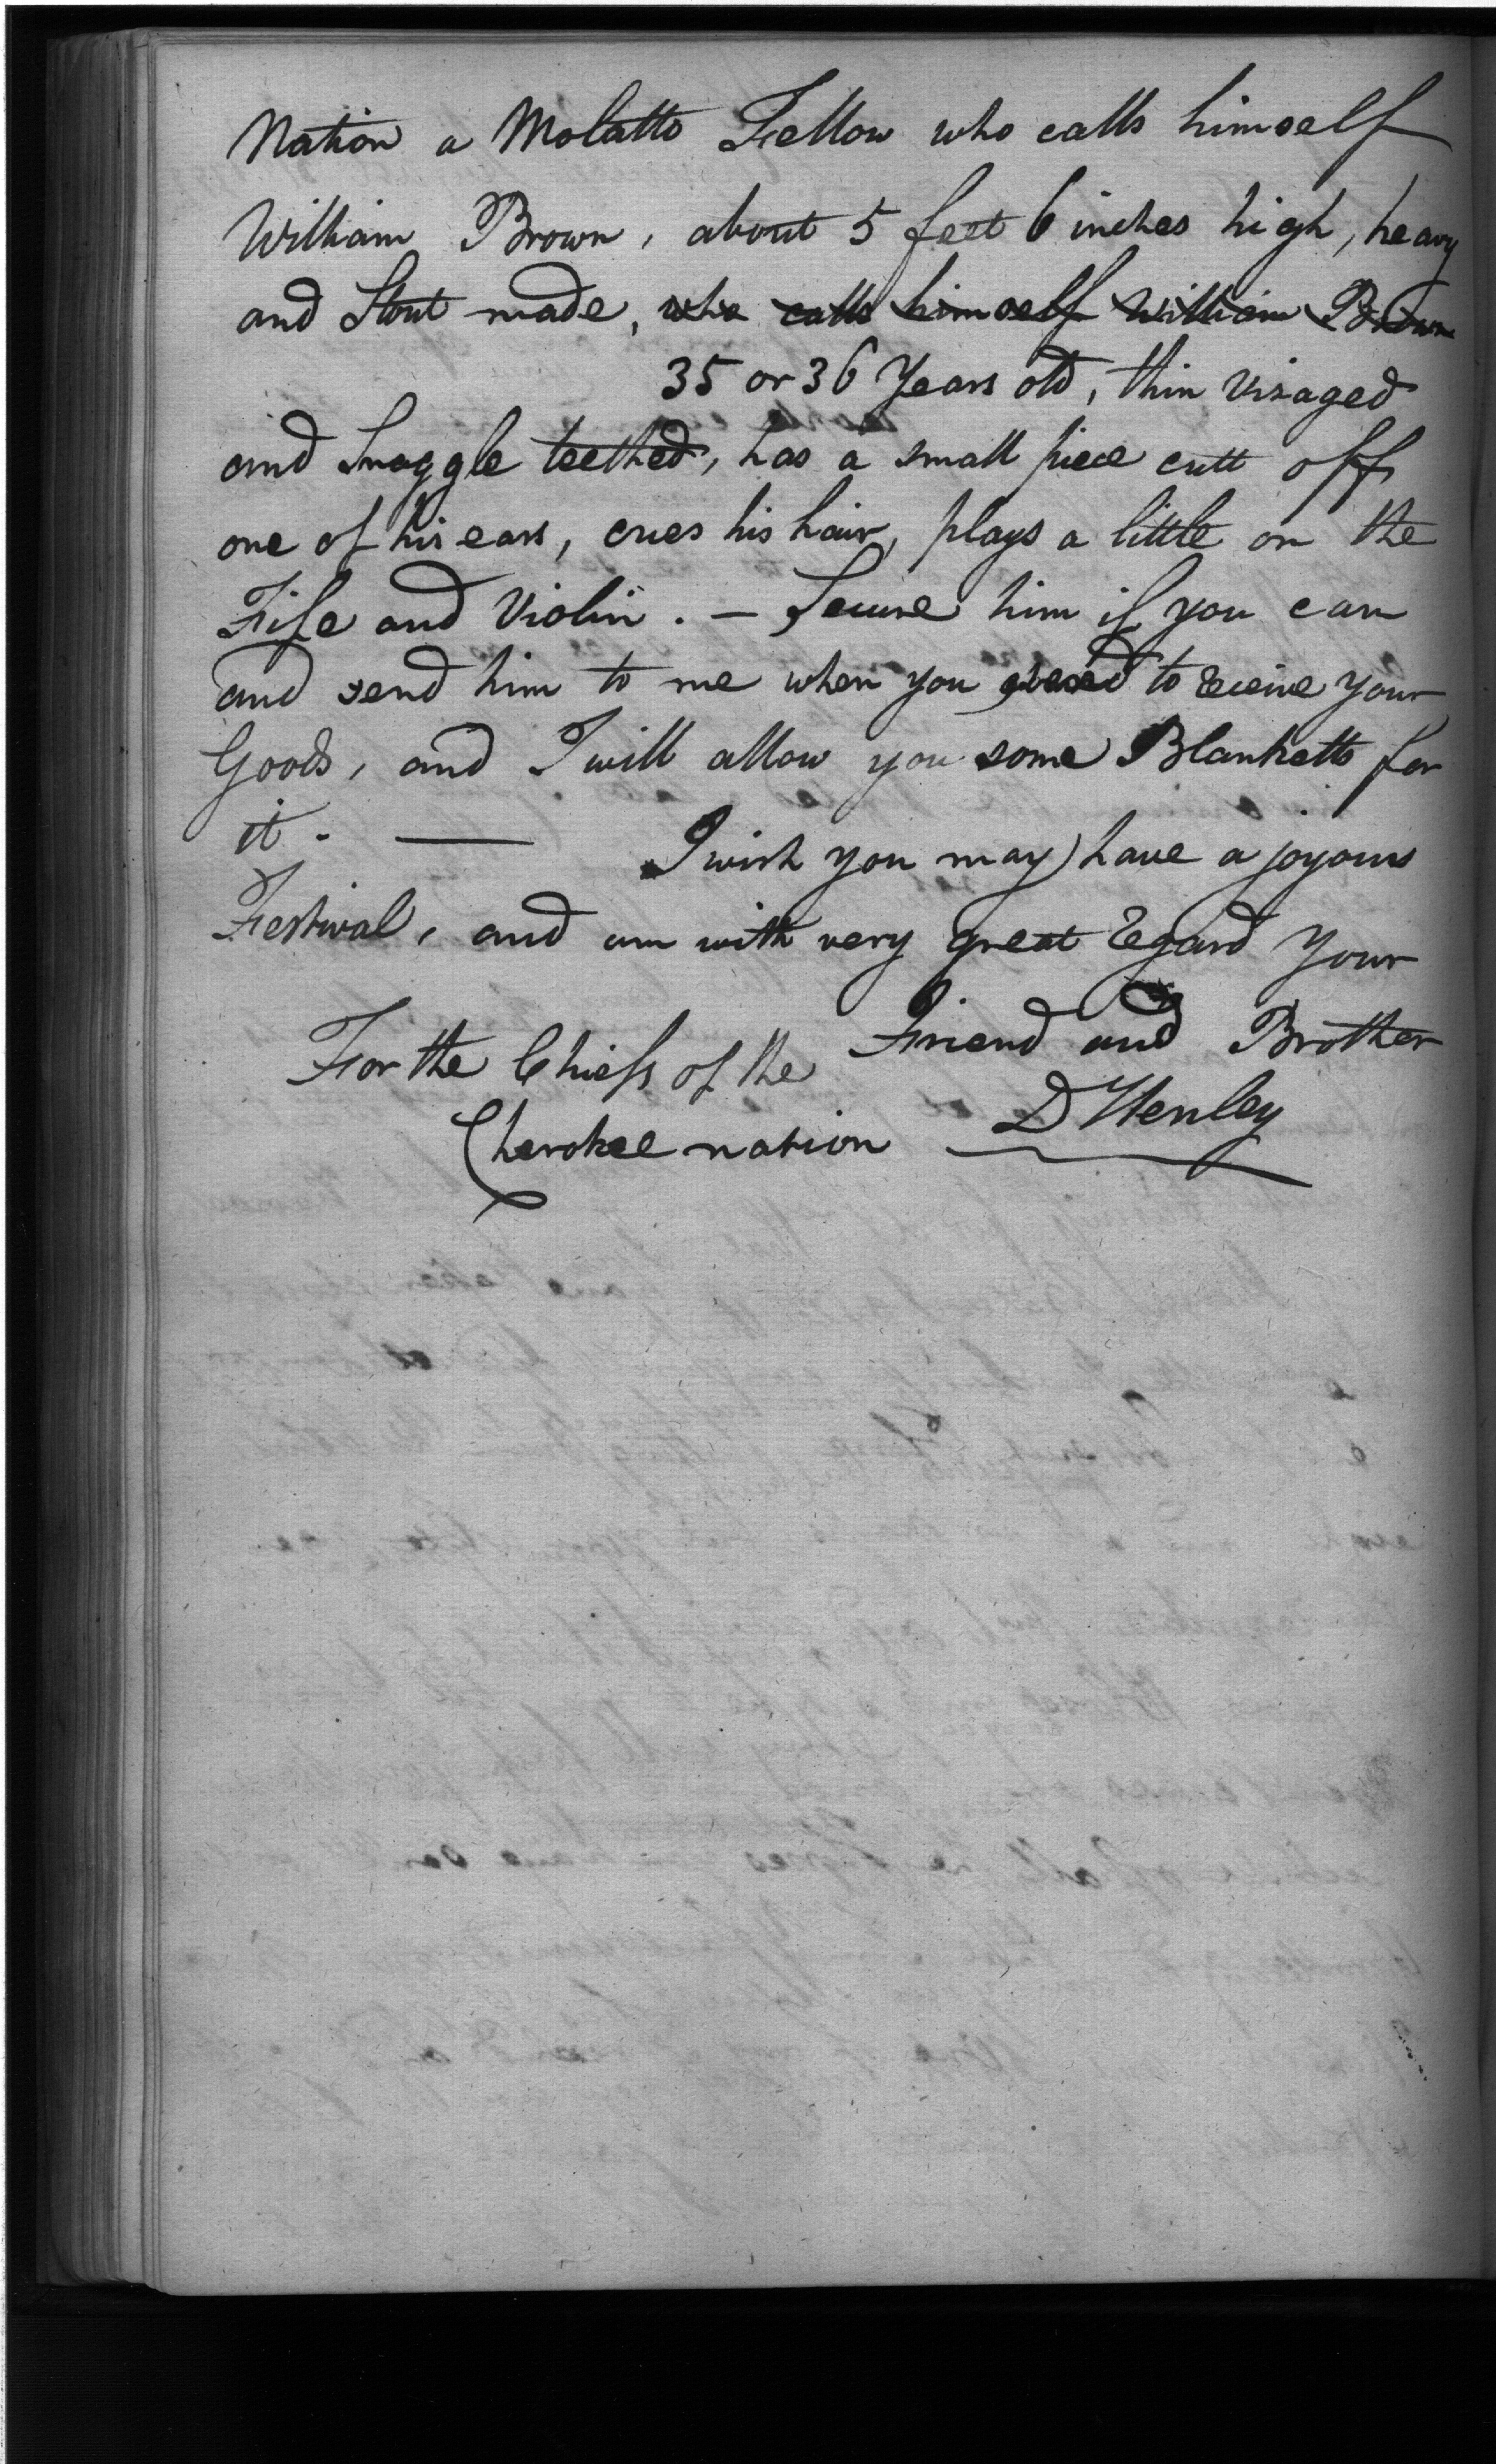 Nation a Molatto Fellow who calls himself
William Brown, about 5 feet 6 inches high, heavy
and Stout made, who calls himself William Brown
35 or 36 Years old, thin visaged
and Snaggle teethed, has a small piece cutt off
one of his ears, cues his hair, plays a little on the
Fife and Violin. — Secure him if you can
and send him to me when you to receive your
Goods, and I will allow you some Blanketts for
it. — I wish you may have a joyous
Festival, and am with very great Regard Your
Friend and Brother
For the Chiefs of the
Cherokee nation D Henley